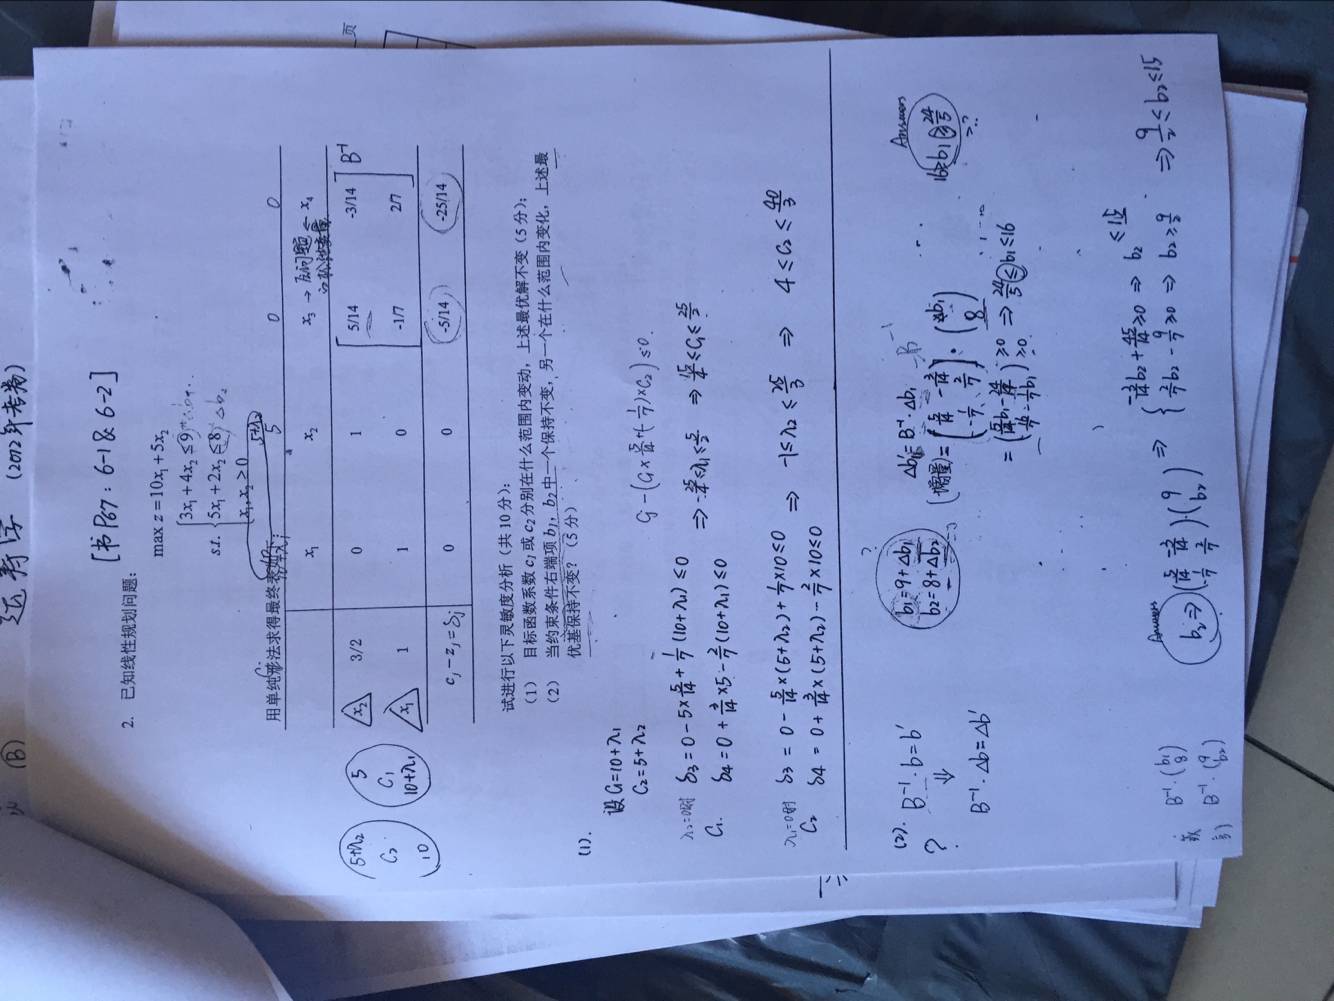 (B) 运筹学 (2012年考卷)
[书P67: 6-1 & 6-2]
2. 已知线性规划问题:
max z = 10x₁ + 5x₂
3x₁ + 4x₂ ≤ 9
s.t. 5x₁ + 2x₂ ≤ 8 + Δb₂
x₁, x₂ > 0
用单纯形法求得最终表如下:
Cⱼ 10+λ₁ 5+λ₂
5 0 0
x₁ x₂ x₃ → 原问题 ← x₄
的松弛变量
5+λ₂ 5 x₂ 3/2 0 1 5/14 -3/14 B⁻¹
C₂ C₁
10 10+λ₁ x₁ 1 1 0 -1/7 2/7
cⱼ - zⱼ = δⱼ 0 0 -5/14 -25/14
页
试进行以下灵敏度分析(共 10 分):
(1) 目标函数系数 c₁ 或 c₂ 分别在什么范围内变动,上述最优解不变(5 分);
(2) 当约束条件右端项 b₁, b₂ 中一个保持不变,另一个在什么范围内变化,上述最
优基保持不变?(5 分)
(1).
设 C₁=10+λ₁
C₂=5+λ₂
Cⱼ-(C₁×5/14+(-1/7)×C₂) ≤0.
λ₂=0时 δ₃=0-5×5/14+1/7(10+λ₁)≤0
⇒ -25/4≤λ₁≤5/2 ⇒ 15/4≤C₁≤25/2
C₁. δ₄=0+3/14×5-2/7(10+λ₁)≤0
λ₁=0时 δ₃ = 0-5/14×(5+λ₂)+1/7×10≤0
⇒ -1≤λ₂≤25/3 ⇒ 4≤C₂≤40/3
C₂ δ₄ = 0+3/14×(5+λ₂)-2/7×10≤0
?
(2). B⁻¹·b=b′
b₁=9+Δb₁
b₂=8+Δb₂
Δb₁′=B⁻¹·Δb₁ B⁻¹
Answers
?
⇓
(增量)=(5/14 -3/14 -1/7 2/7)·(b₁ 8)
16≥b₁≥24/5
>?
B⁻¹·Δb=Δb′
=(5/14b₁-24/14 16/7-1/7b₁) ≥0 ≥0 ⇒ 24/5≤b₁≤16
B⁻¹·(b₁ 8)
B⁻¹·(9 b₂)
Answers
b₂⇒(5/14 -3/14 -1/7 2/7)·(9 b₂) ⇒
-3/14b₂+45/14≥0 ⇒ b₂ ≤15
2/7b₂-9/7≥0 ⇒ b₂≥9/2
⇒ 9/2≤b₂≤15